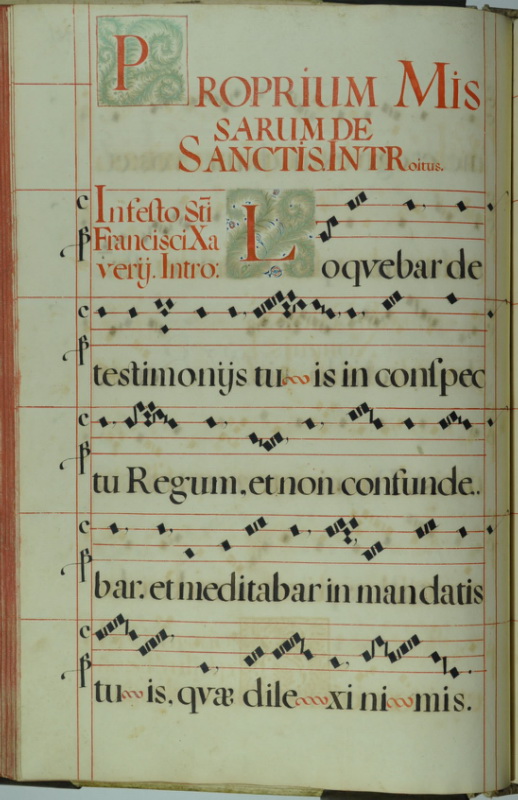 PROPRIUM MIS
SARUM DE
SANCTIS. INTRoitus.
In festo Sti
Francisci Xa
verij. Intro:
Loqvebar de
testimonijs tu is in conspec
tu Regum. et non confunde..
bar. et meditabar in mandatis
tu is. qvæ dile xi ni mis.